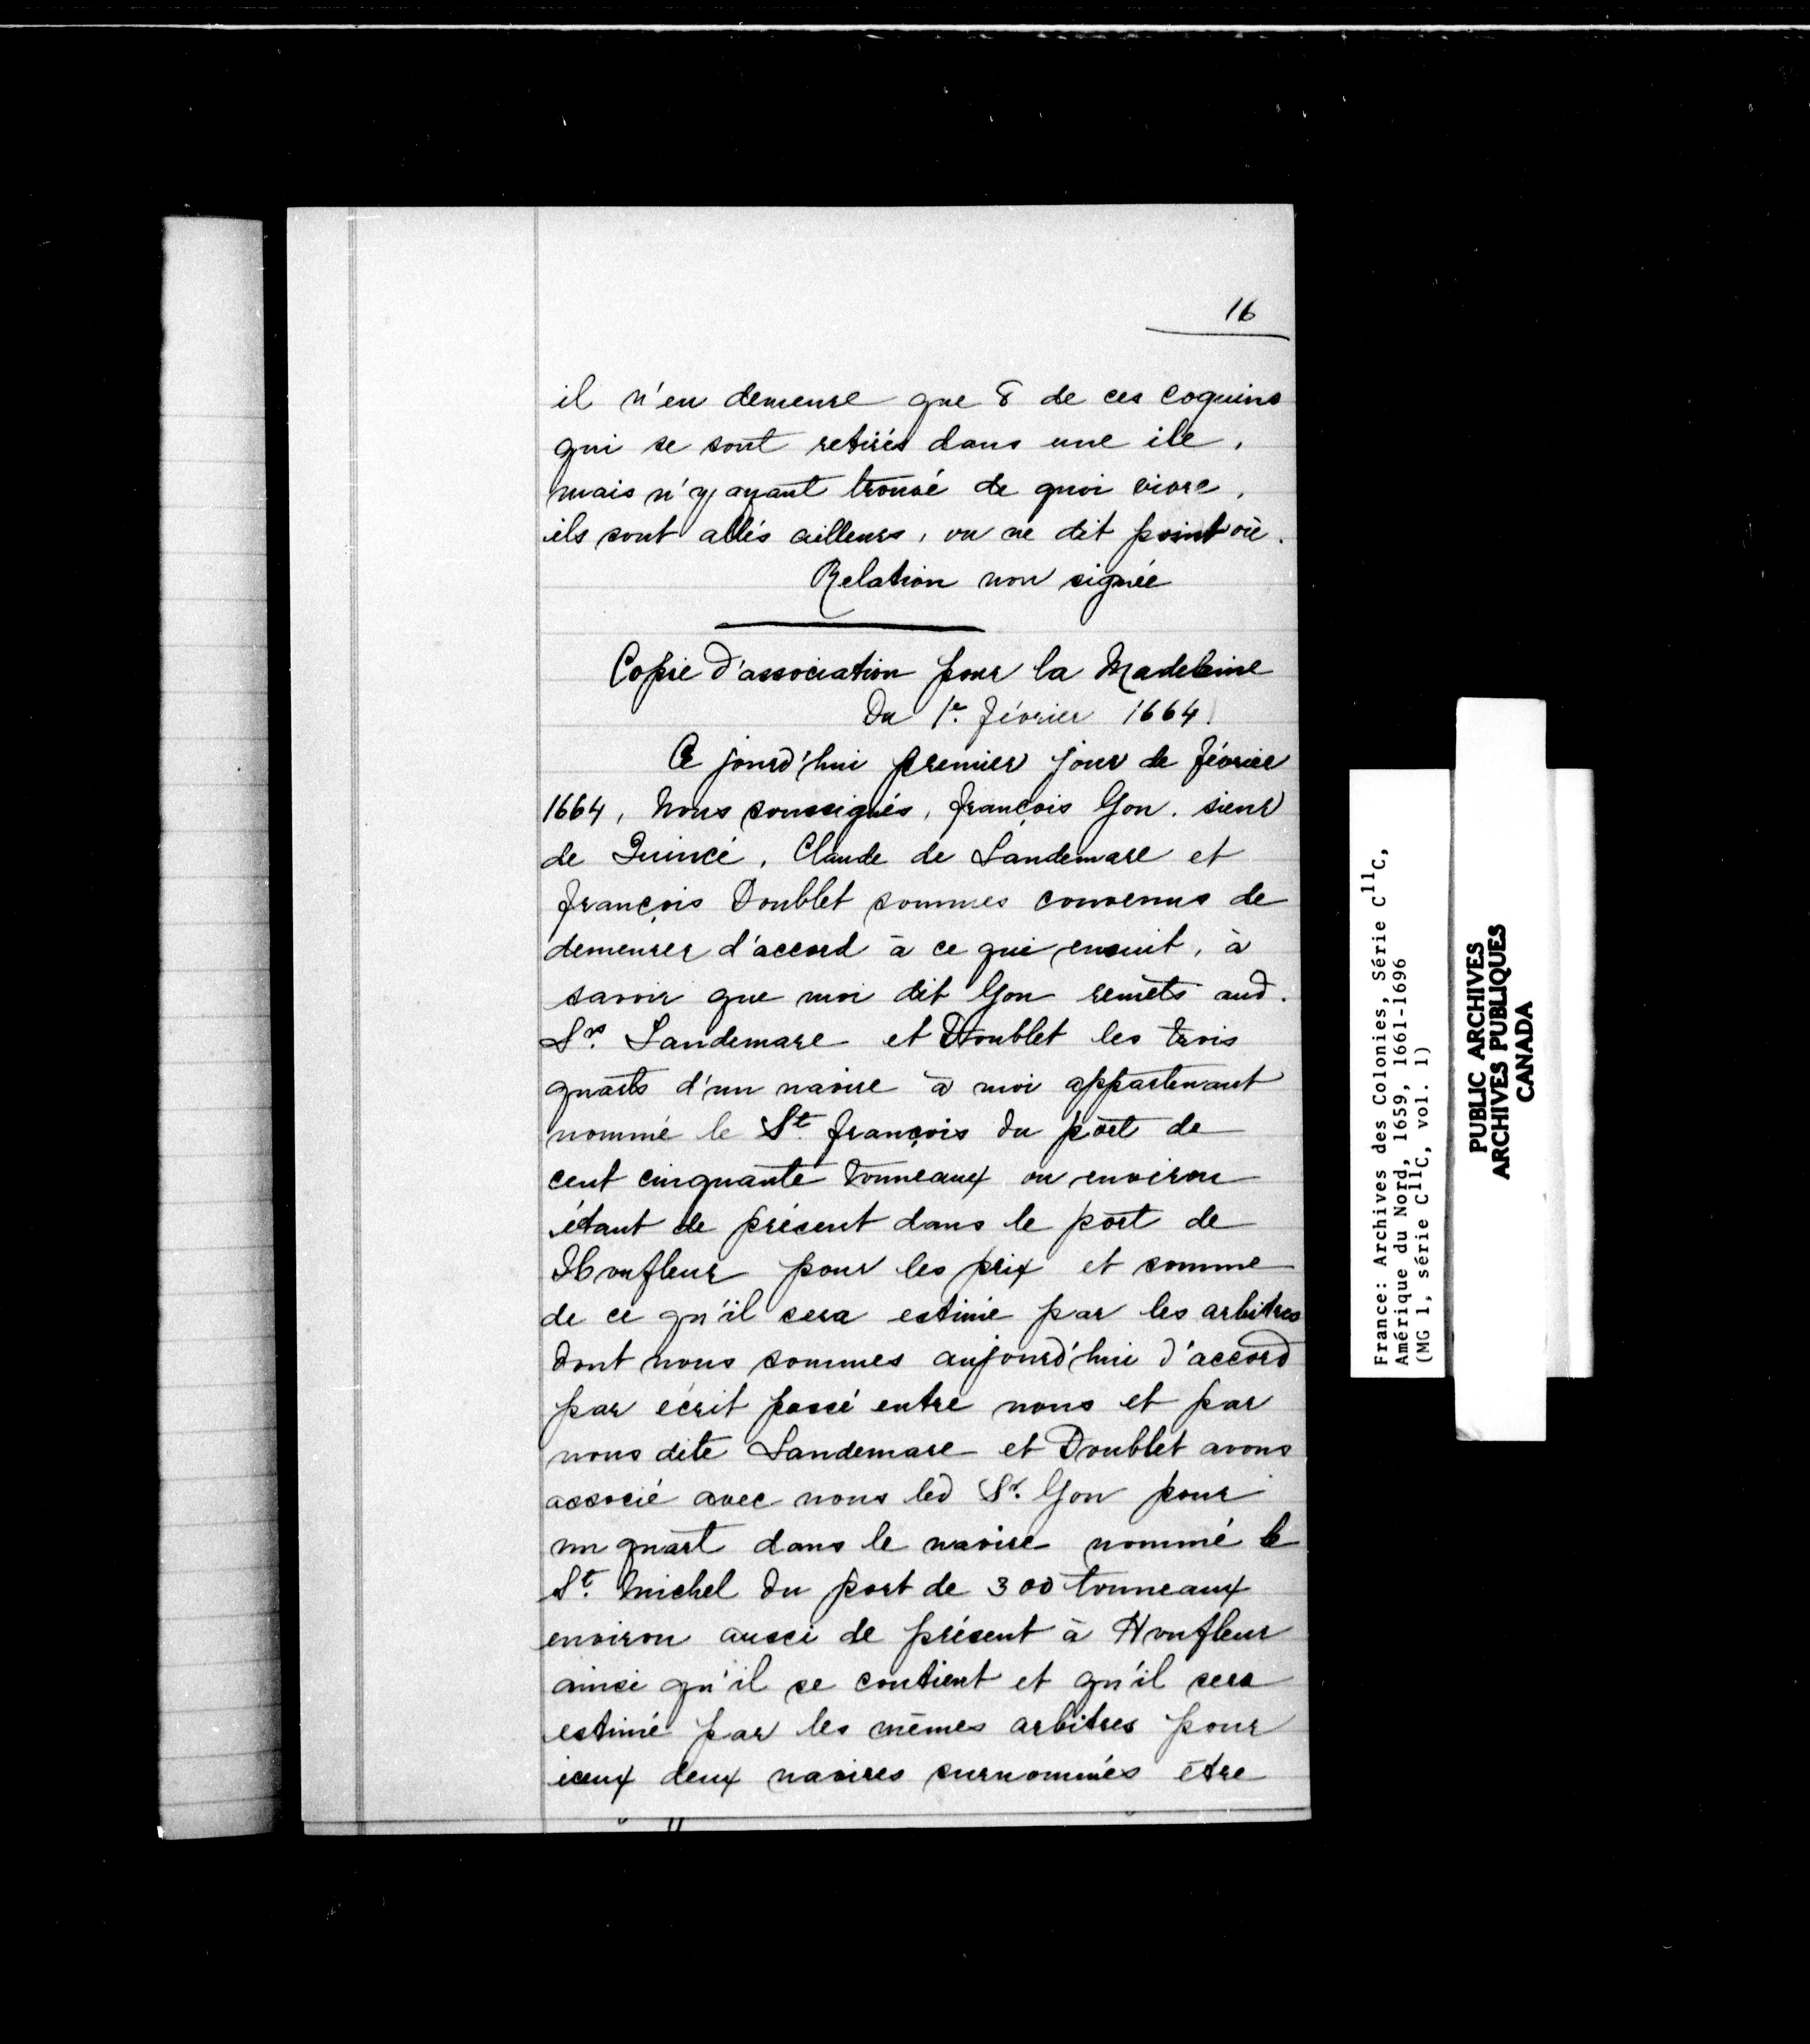 16
il n'en demeure que 8 de ces coquins
qui se sont retirés dans une ile,
mais n'y ayant trouvé de quoi vivre,
ils sont allés ailleurs, on ne dit point où.
Relation non signée
Copie d'association pour la Madeleine
Du 1er février 1664.
Ce jourd'hui premier jour de février
1664, Nous soussignés, françois Gon, sieur
de Quincé, Claude de Landemare et
françois Doublet sommes convenus de
demeurer d'accord à ce qui ensuit, à
savoir que moi dit Gon remets aud.
Srs. Landemare et Doublet les trois
quarts d'un navire à moi appartenant
nommé le St. françois du port de
cent cinquante tonneaux ou environ
étant de présent dans le port de
Honfleur pour les prix et somme
de ce qu'il sera estimé par les arbitres
dont nous sommes aujourd'hui d'accord
par écrit passé entre nous et par
nous dits Landemare et Doublet avons
associé avec nous led Sr. Gon pour
un quart dans le navire nommé le
St. Michel du port de 300 tonneaux
environ aussi de présent à Honfleur
ainsi qu'il se contient et qu'il sera
estimé par les mêmes arbitres pour
iceux deux navires surnommés être
France: Archives des Colonies, Série C11C,
Amérique du Nord, 1659, 1661-1696
(MG 1, série C11C, vol. 1)
PUBLIC ARCHIVES
ARCHIVES PUBLIQUES
CANADA